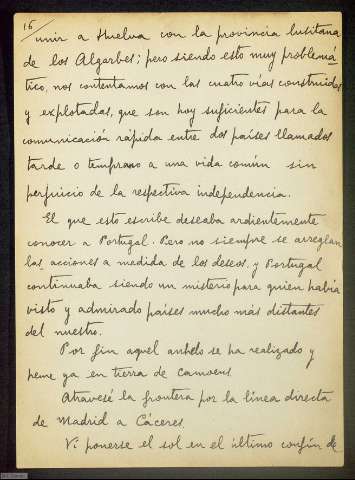 16
unir a Huelva con la provincia lusitana
de los Algarbes; pero siendo esto muy problemá
tico, nos contentamos con las cuatro vías construidas
y explotadas, que son hoy suficientes para la
comunicación rápida entre dos países llamados
tarde o temprano a una vida común sin
perjuicio de la respectiva independencia.
El que esto escribe deseaba ardientemente
conocer a Portugal. Pero no siempre se arreglan
las acciones a medida de los deseos, y Portugal
continuaba siendo un misterio para quien había
visto y admirado países mucho más distantes
del nuestro.
Por fin aquel anhelo se ha realizado y
heme ya en tierra de Camoens.
Atravesé la frontera por la línea directa
de Madrid a Cáceres.
Vi ponerse el sol en el último confín de